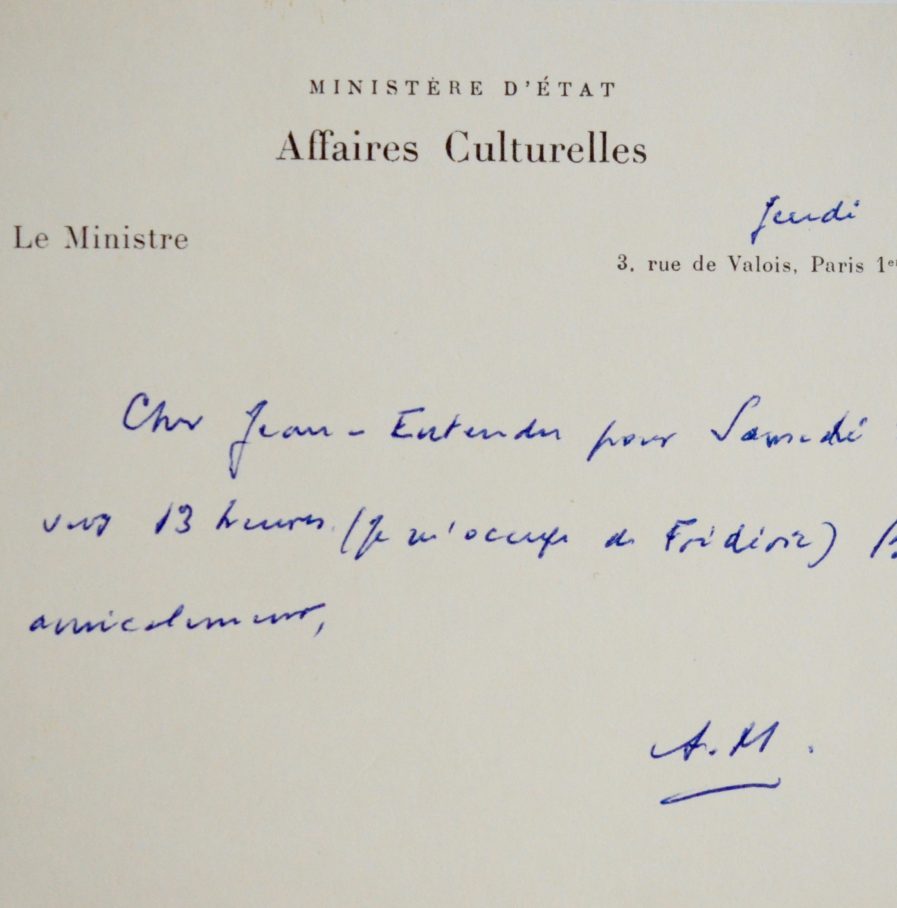 MINISTÈRE D'ÉTAT
Affaires Culturelles
Jeudi
Le Ministre
3, rue de Valois, Paris 1er
Cher Jean - Entendu pour Samedi
vers 13 heures. (Je m'occupe de Frédéric)
amicalement,
A.M.